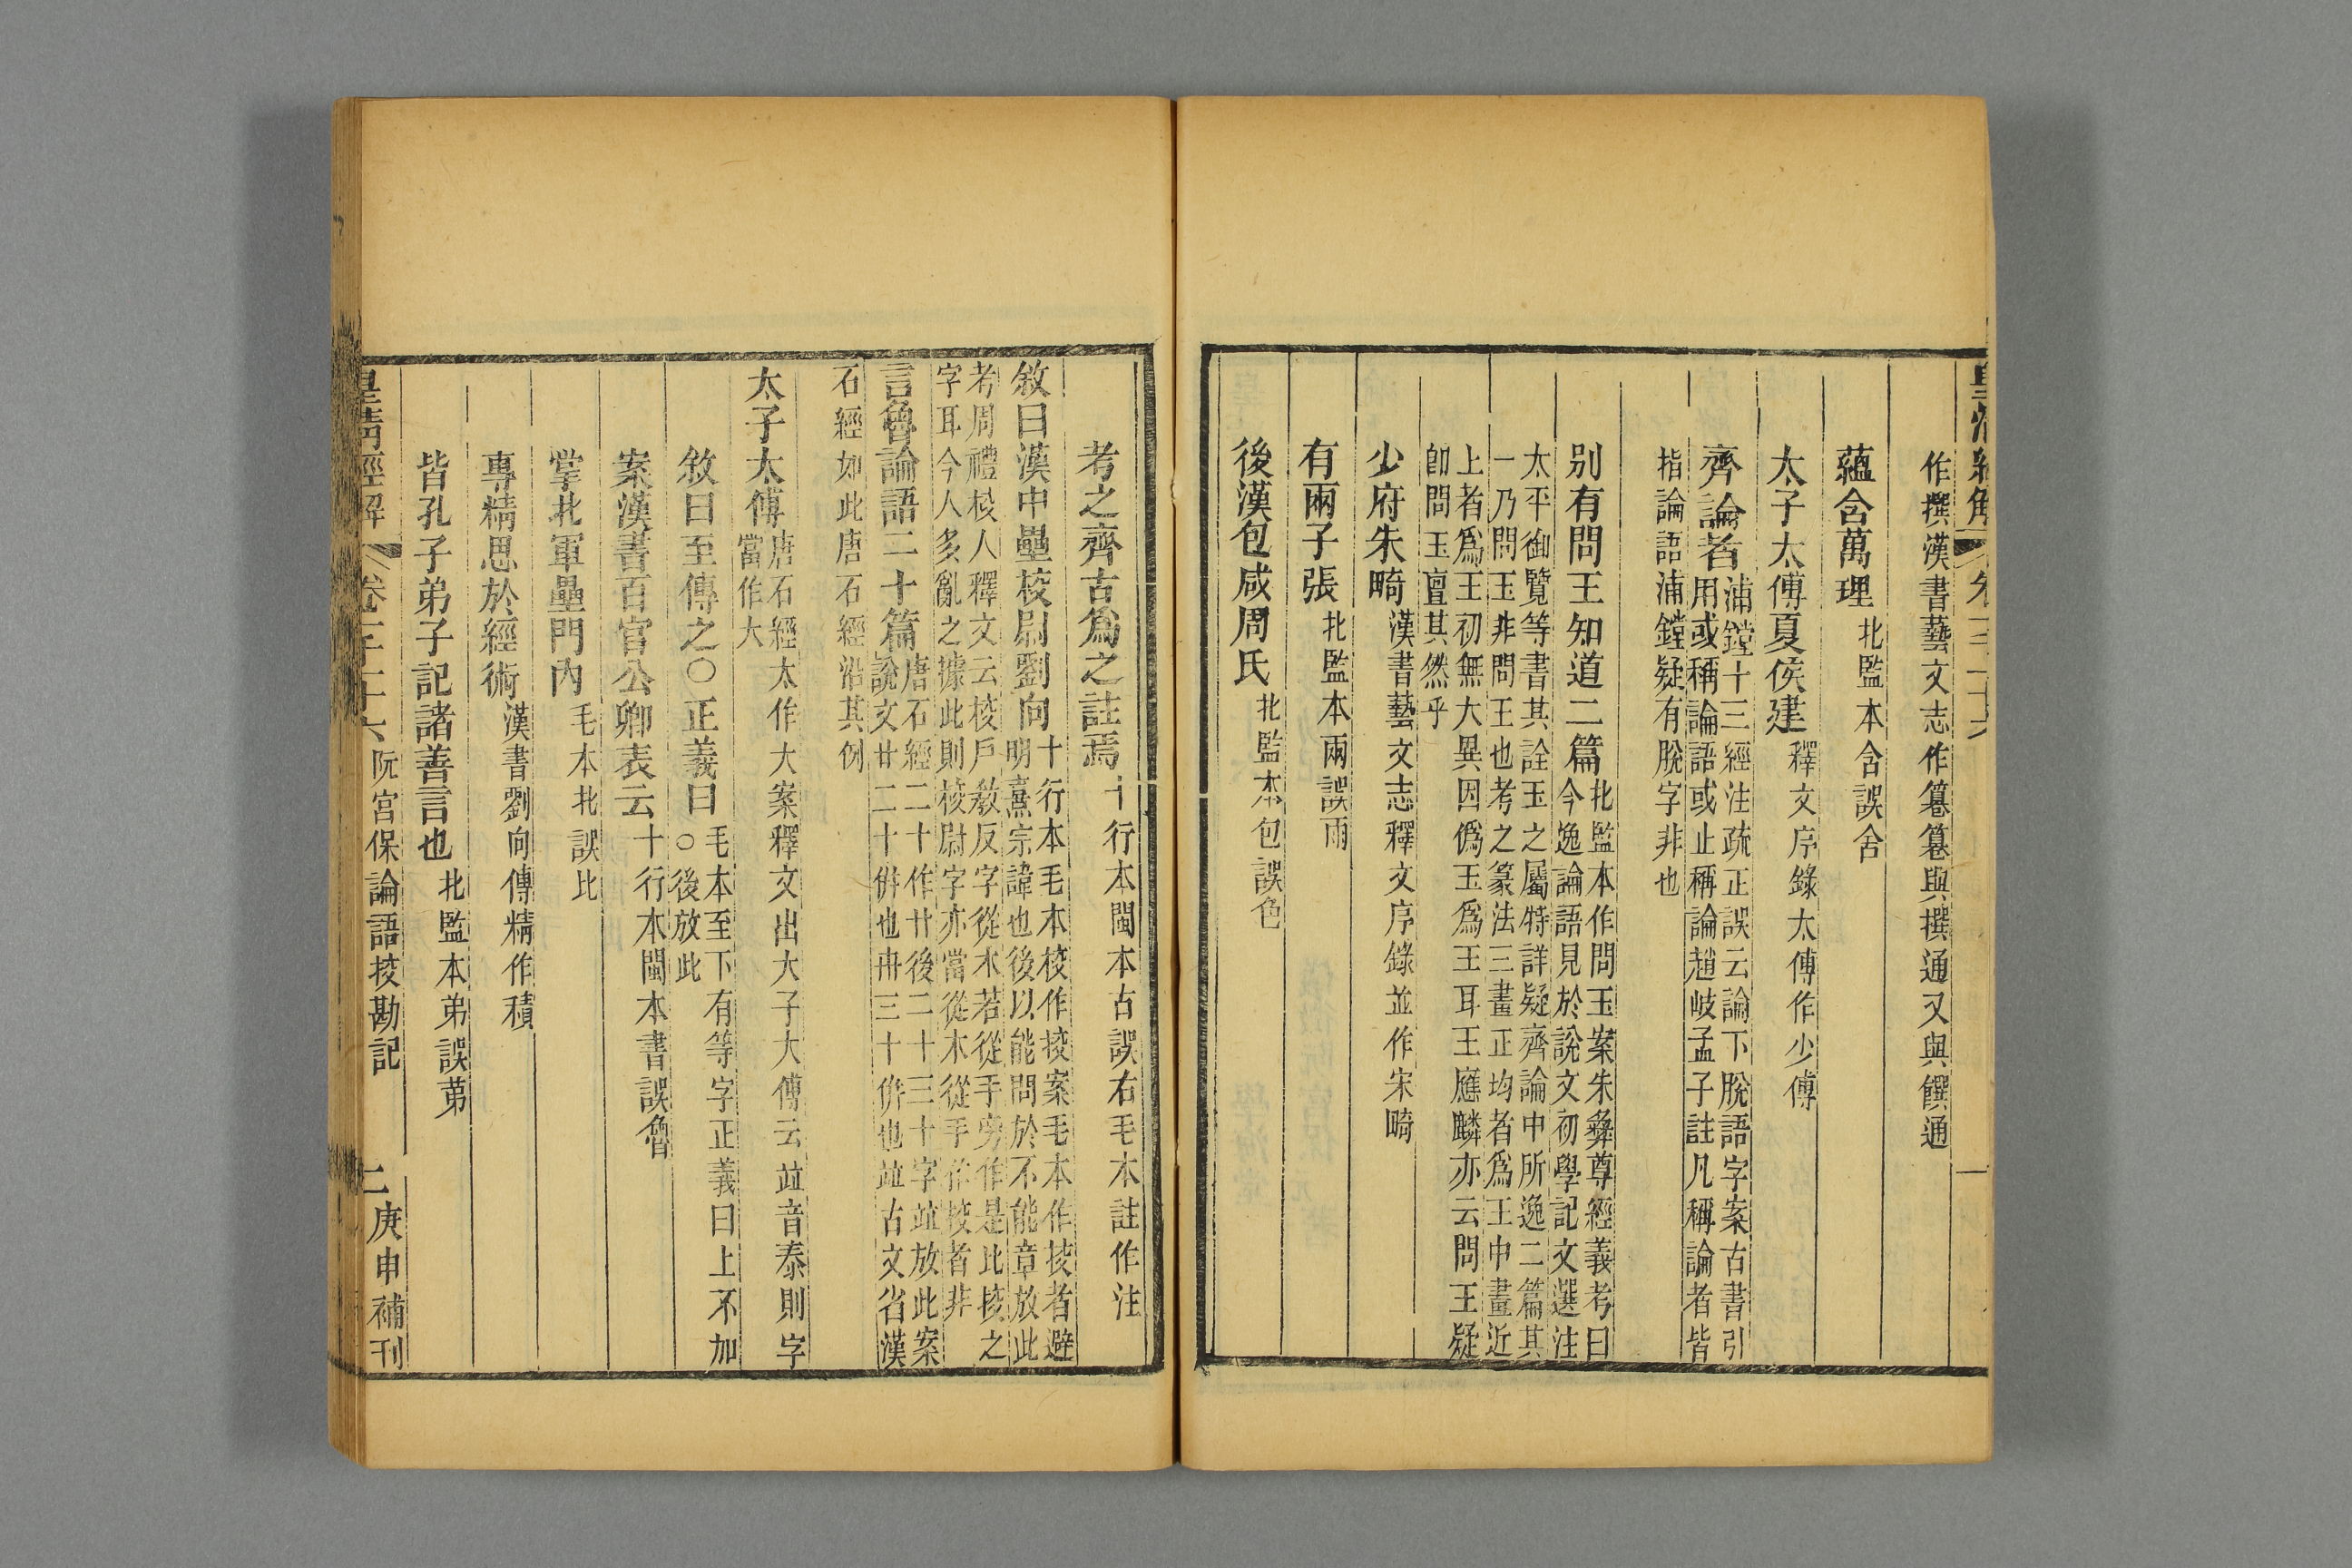 作撰漢書藝文志作篹篹與撰通又與饌通
蘊含萬理北監本含誤舍
太子太傅夏侯建釋文序錄太傅作少傅
齊論者浦鏜十三經注疏正誤云論下脫語字案古書引
用或稱論語或止稱論趙岐孟子註凡稱論者皆
指論語浦鏜疑有脫字非也
別有問王知道二篇北監本作問玉案朱彝尊經義考曰
今逸論語見於說文初學記文選注
太平御覽等書其詮玉之屬特詳疑齊論中所逸二篇其
一乃問玉非問王也考之篆法三畫正均者爲王中畫近
上者爲王初無大異因僞玉爲王耳王應麟亦云問王疑
卽問玉亶其然乎
少府朱畸漢書藝文志釋文序錄並作宋畸
有兩子張北監本兩誤雨
後漢包咸周氏北監本包誤色
考之齊古爲之註焉十行本閩本古誤右毛本註作注
敘曰漢中壘校尉劉向十行本毛本校作挍案毛本作挍者避
明熹宗諱也後以能問於不能章放此
考周禮校人釋文云校戶教反字從木若從手旁作是比挍之
字耳今人多亂之據此則校尉字亦當從木從手作挍者非
言魯論語二十篇唐石經二十作廿後二十三十字竝放此案
說文廿二十併也卅三十併也竝古文省漢
石經如此唐石經沿其例
太子太傅唐石經太作大案釋文出大子大傅云竝音泰則字
當作大
敘曰至傳之○正義曰毛本至下有等字正義曰上不加
○後放此
案漢書百官公卿表云十行本閩本書誤魯
掌北軍壘門內毛本北誤比
專精思於經術漢書劉向傳精作積
皆孔子弟子記諸善言也北監本弟誤苐
皇清經解 阮宮保論語挍勘記 二 庚申補刊